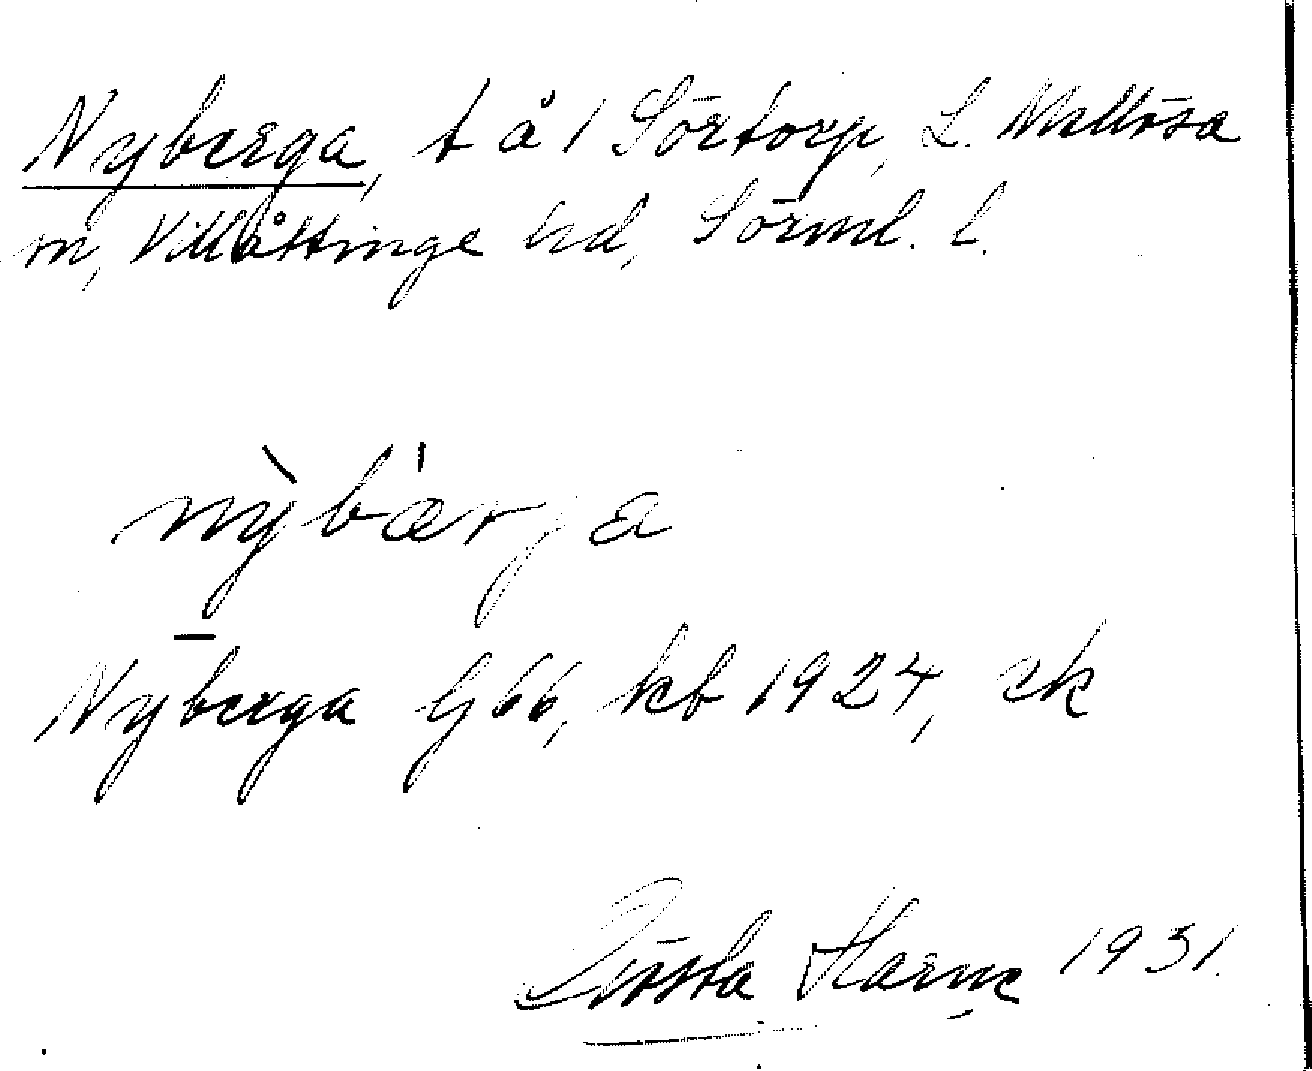 Nyberga, t å 1 Sörtorp, L. Mellösa
sn, Villåttinge hd, Sörml. l.
nỳbæ'rja
Nyberga G 66, kb 1924, ek
Gösta 1931.